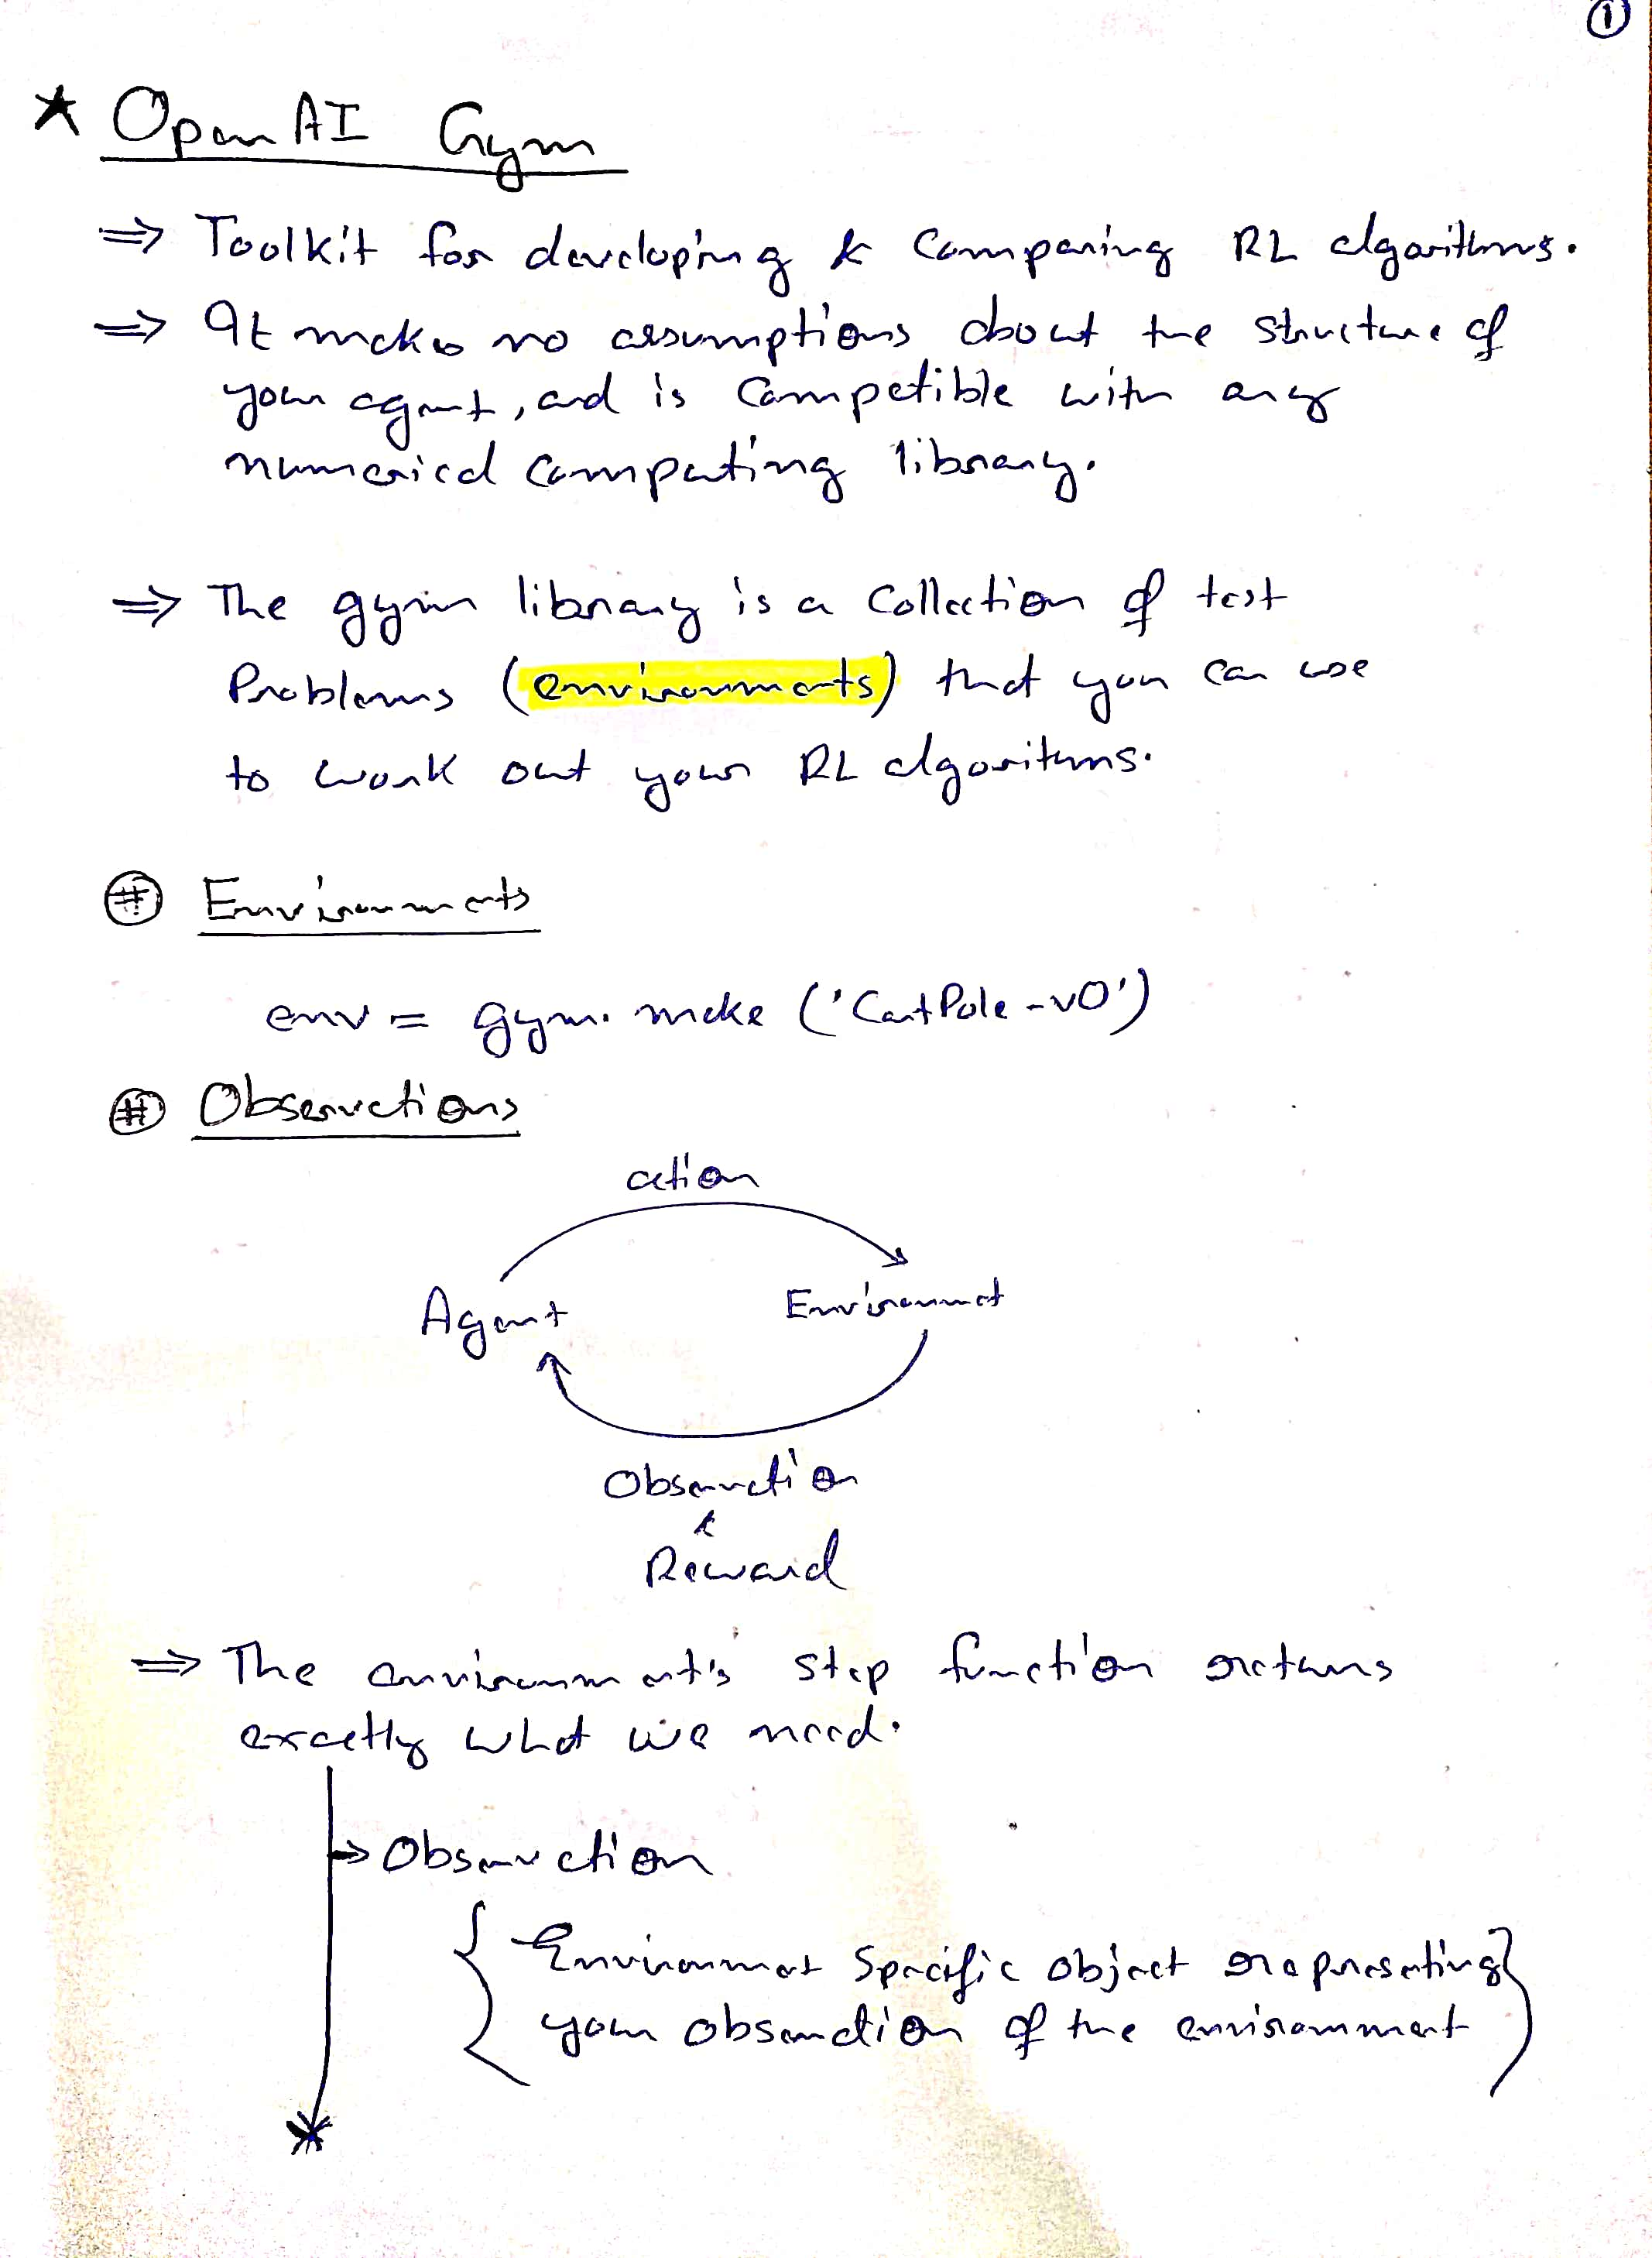 ①
★ OpenAI Gym
⇒ Toolkit for developing & Comparing RL algorithms.
⇒ It makes no assumptions about the structure of
your agent, and is Compatible with any
numerical Computing library.
⇒ The gym library is a Collection of test
Problems (environments) that you can use
to work out your RL algorithms.
# Environments
env = gym.make ('CartPole-v0')
# Observations
action
Agent
Environment
Observation
&
Reward
⇒ The environment's step function returns
exactly what we need.
→ Observation
{ Environment Specific object representing }
your observation of the environment